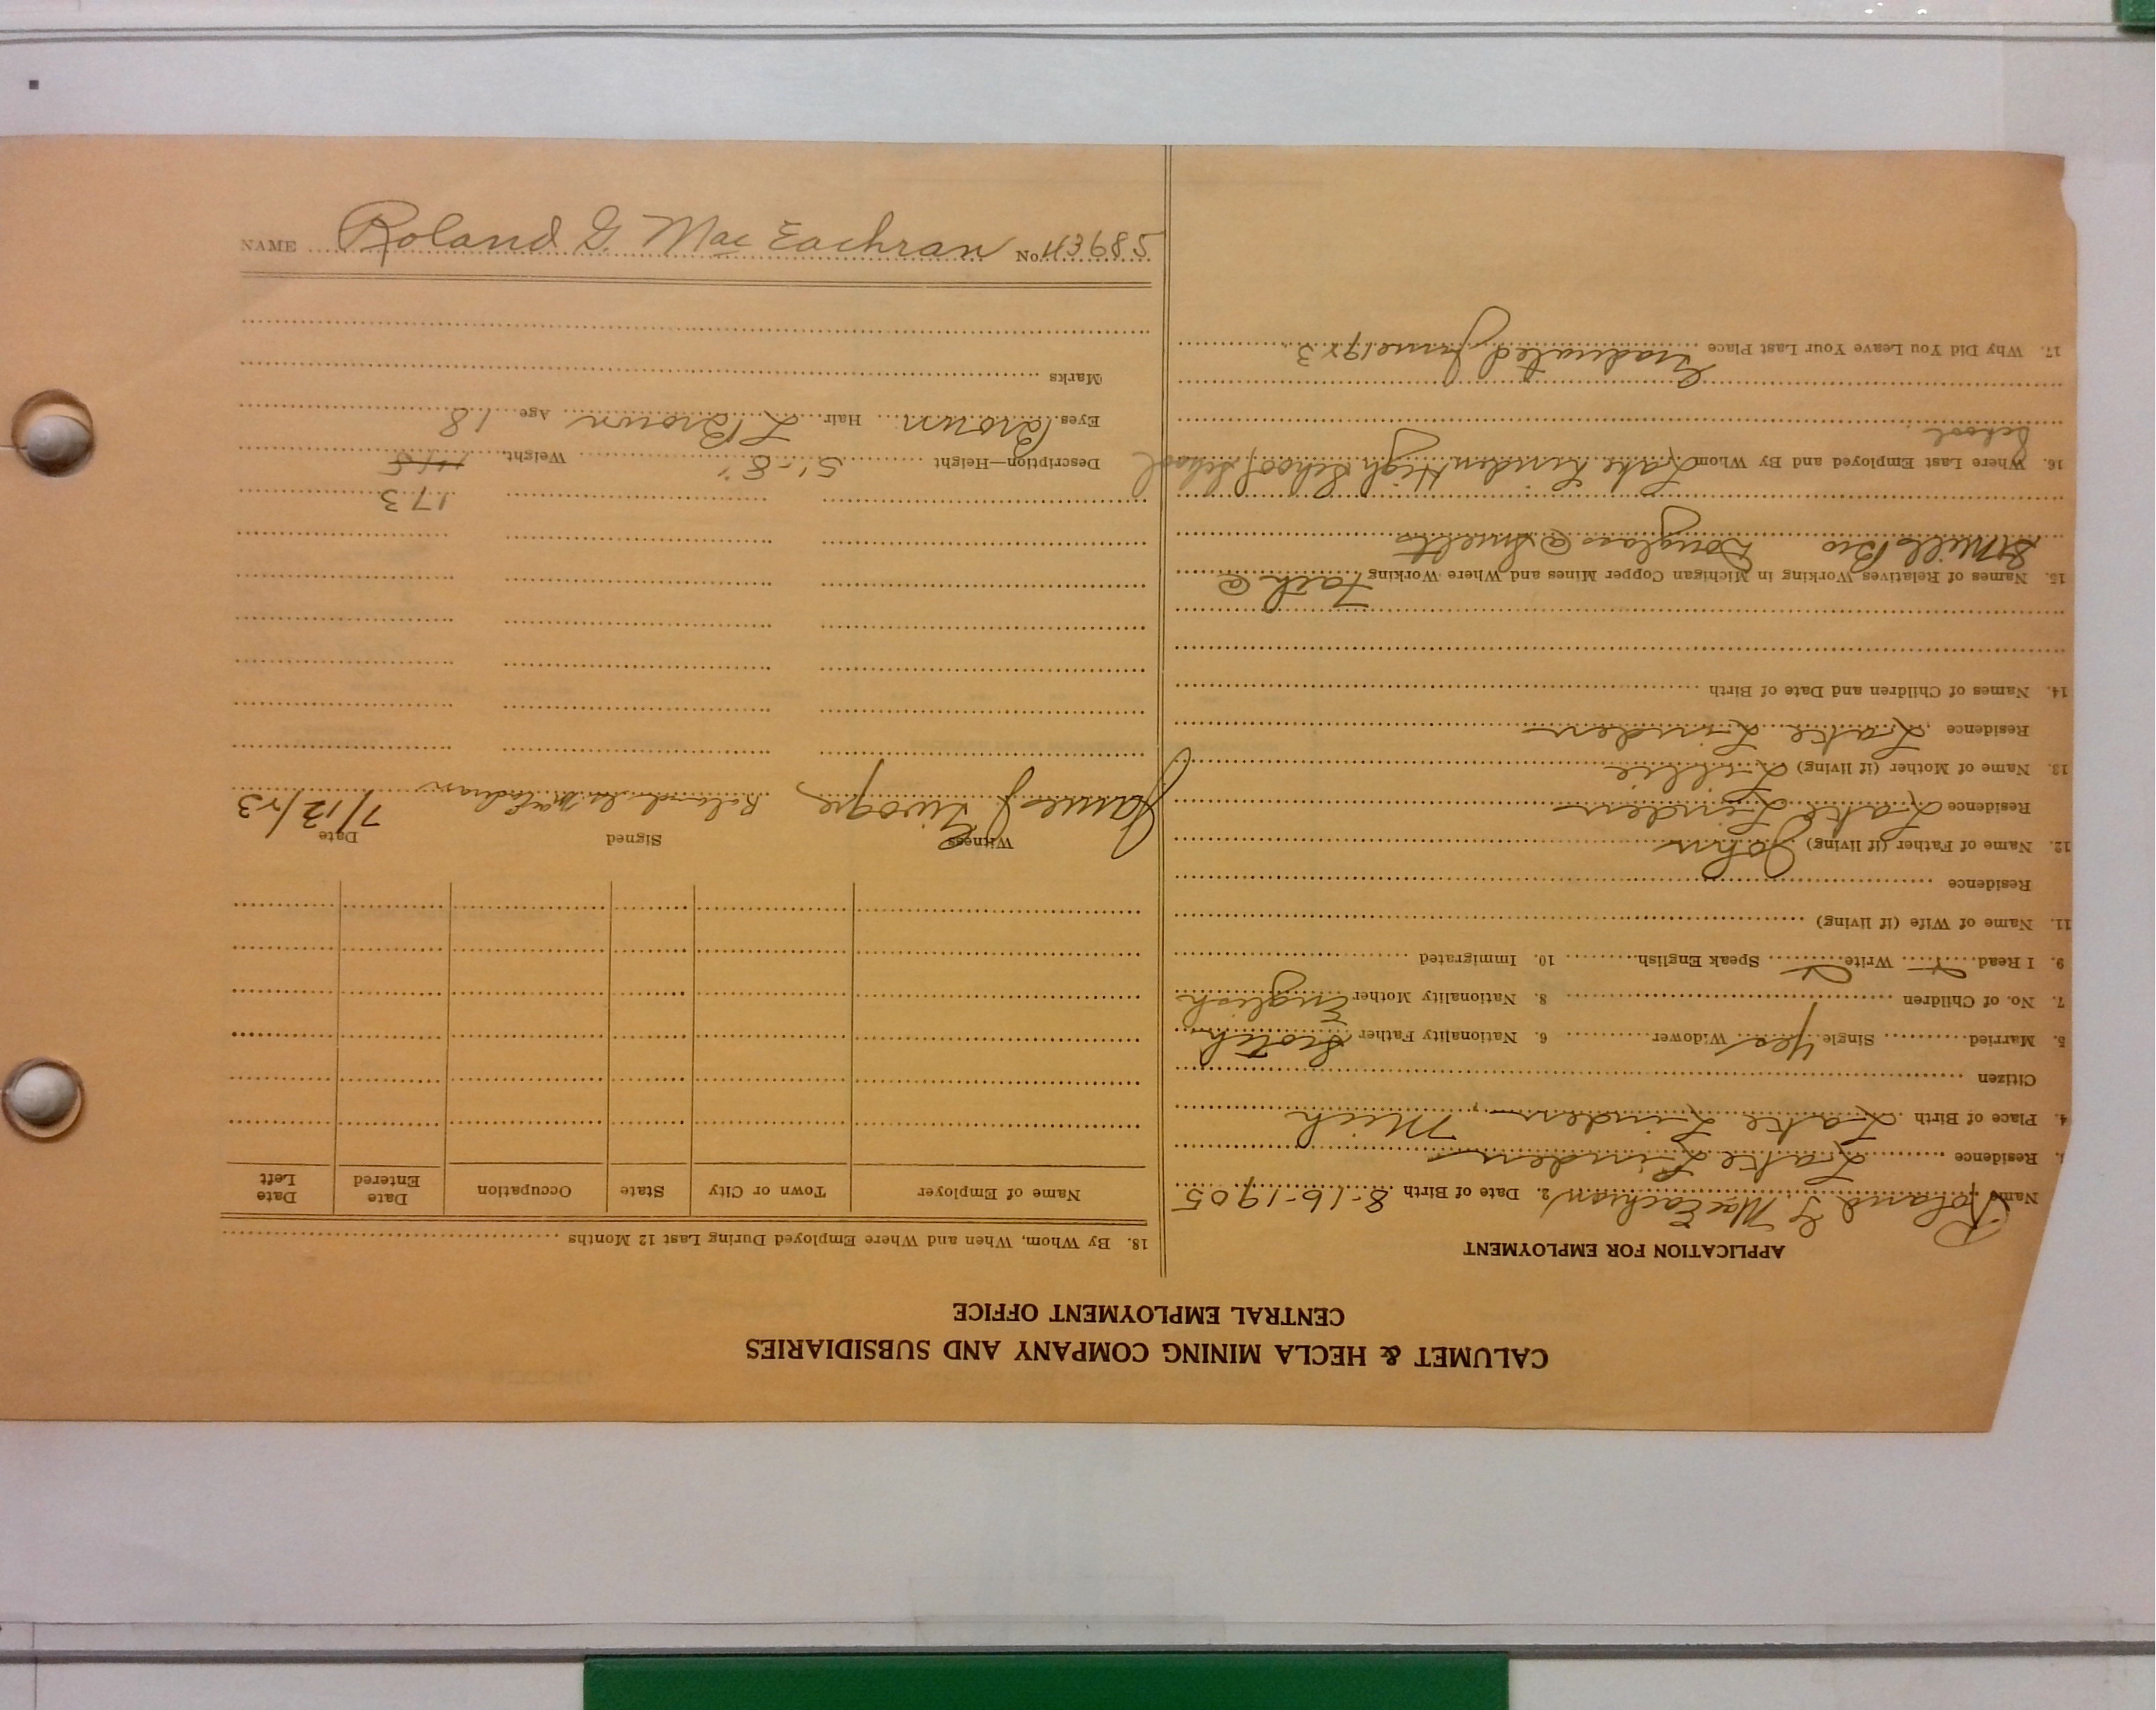 CALUMET & HECLA MINING COMPANY AND SUBSIDIARIES
CENTRAL EMPLOYMENT OFFICE
APPLICATION FOR EMPLOYMENT
Name Roland G MacEachran 2. Date of Birth 8-16-1905
Residence Lake Linden
4. Place of Birth Lake Linden, Mich
Citizen
5. Married Single yes Widower 6. Nationality Father Scotch
7. No. of Children 8. Nationality Mother English
9. I Read Write Speak English 10. Immigrated
11. Name of Wife (if living)
Residence
12. Name of Father (if living) John
Residence Lake Linden
13. Name of Mother (if living) Lillie
Residence Lake Linden
14. Names of Children and Date of Birth
15. Names of Relatives Working in Michigan Copper Mines and Where Working Fath @
S Mill Bro Douglass @ Smelts
16. Where Last Employed and By Whom Lake Linden High School School
School
17. Why Did You Leave Your Last Place Graduated June 1923
18. By Whom, When and Where Employed During Last 12 Months
Name of Employer Town or City State Occupation Date Entered Date Left
Witness Signed Date
James J Roland G MacEachran 7/12/23
173
Description—Height 5'-8" Weight 145
Eyes Brown Hair L Brown Age 18
Marks
NAME Roland G. MacEachran No. 43685